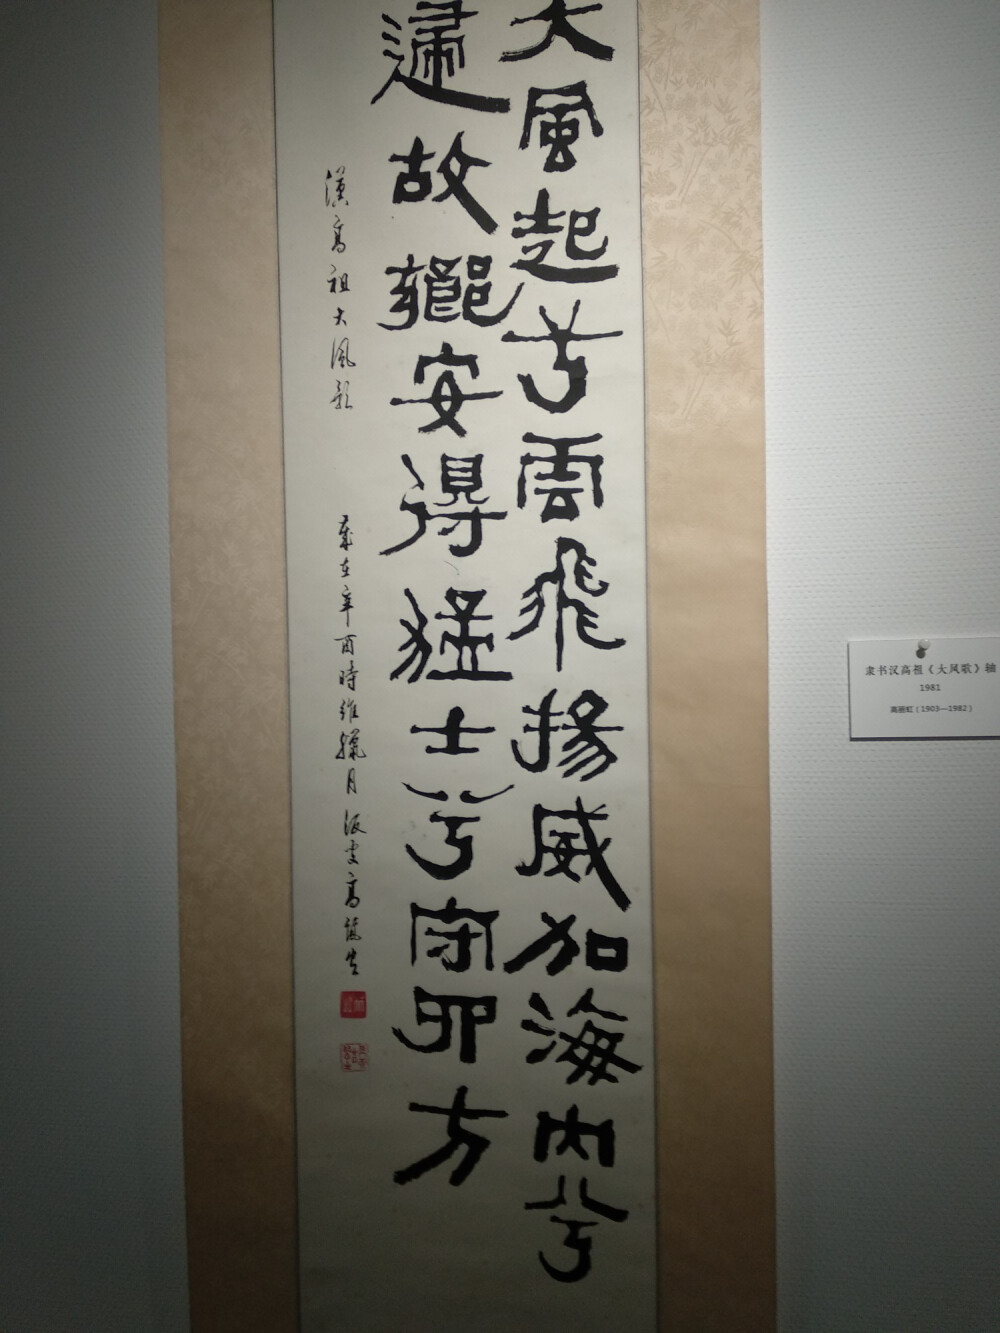 大風起兮雲飛揚威加海内兮
歸故鄉安得猛士兮守四方
漢高祖大風歌
歲在辛酉時維臘月
高
隶书汉高祖《大风歌》轴
1981
（1903—1982）